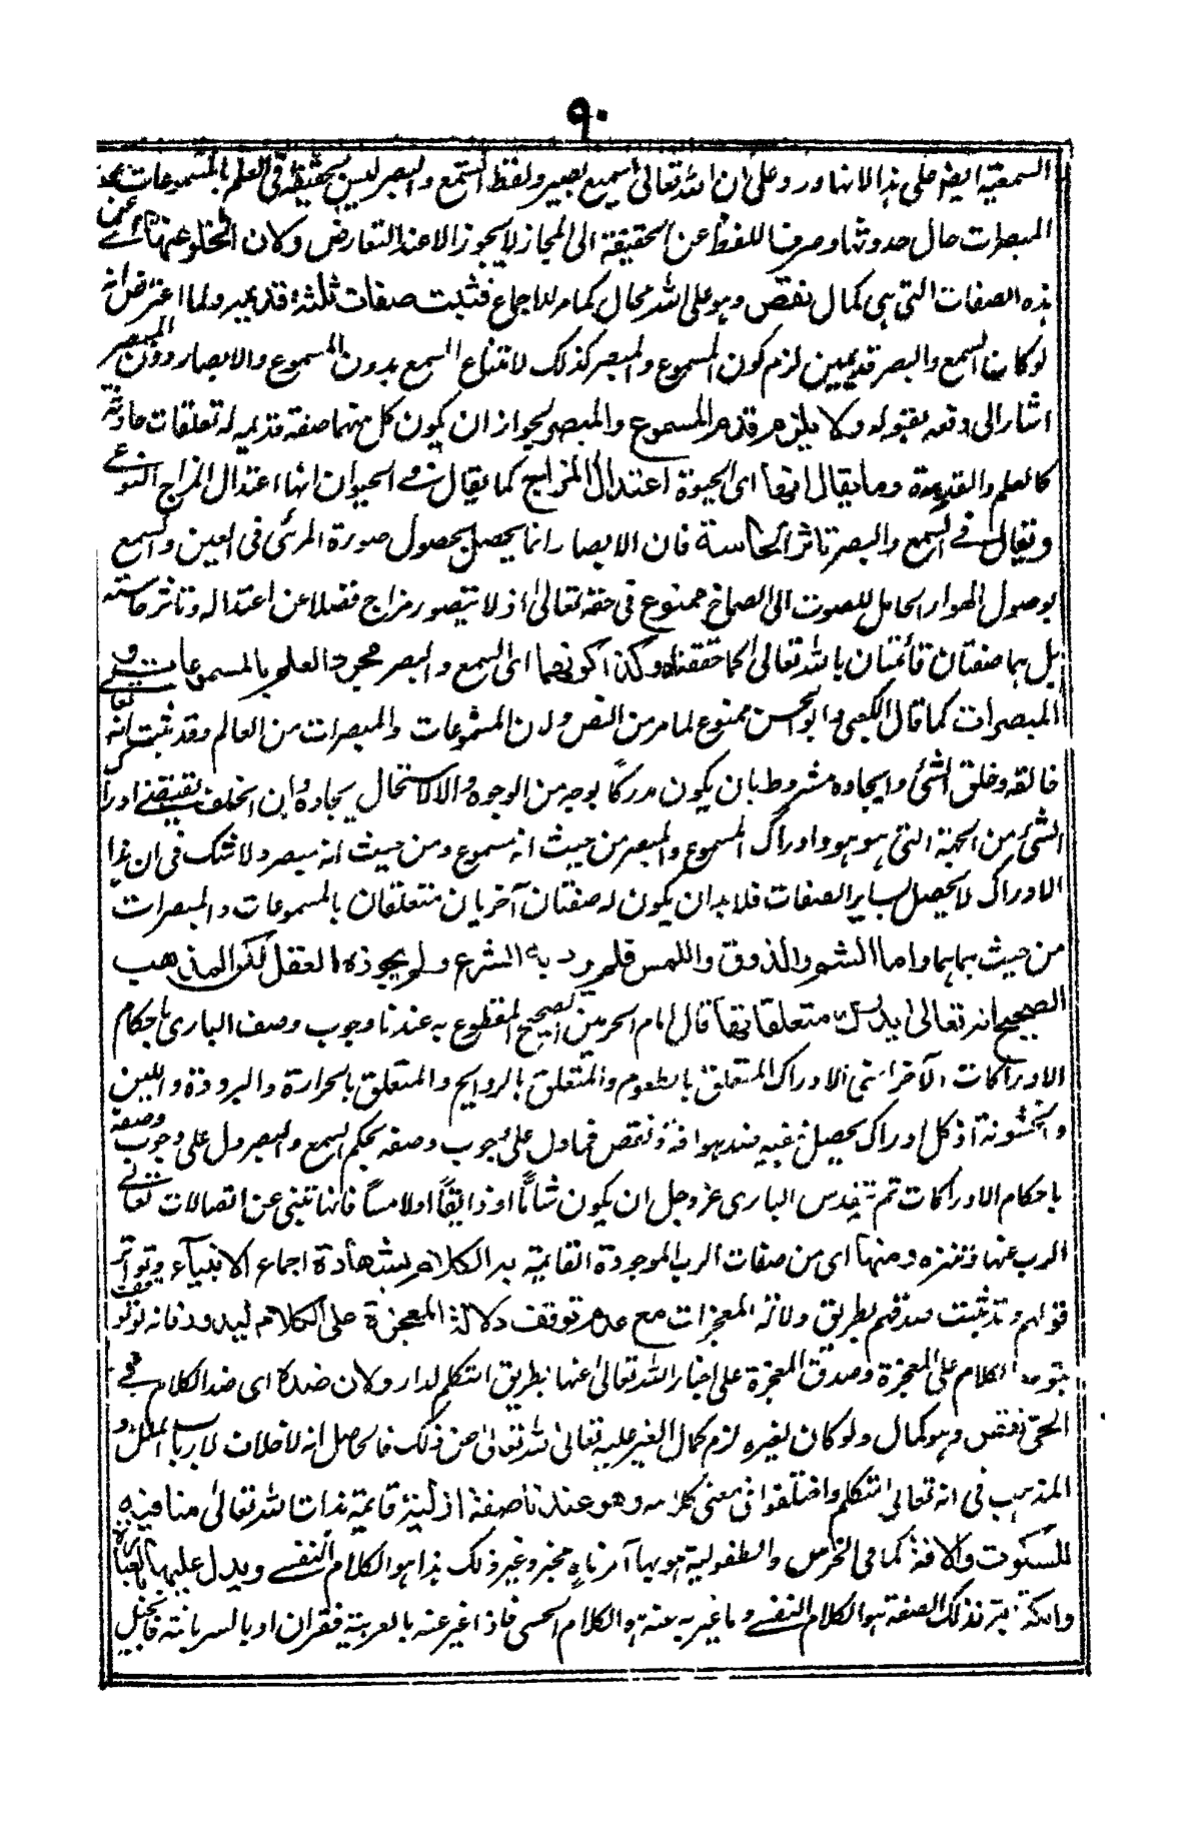 ٩٠
السمعية ايضا على هذا لانها ورد وعلى ان الله تعالى سميع بصير ولفظ السمع والبصر ليس بحقيقة في العلم بالمسموعات
المبصرات حال حدوثها وصرف اللفظ عن الحقيقة الى المجاز لا يجوز الا عند التعارض وكان الخلو عنها اى عن
هذه الصفات التى هى كمال نقص وهو على الله محال كما مر للاجماع فثبت صفات ثلثة قديمة ولما اعترض انه
لو كان السمع والبصر قديمين لزم كون المسموع والمبصر كذلك لامتناع السمع بدون المسموع والابصار دون المبصر
اشار الى دفعه بقوله ولا يلزم قدم المسموع والمبصر لجواز ان يكون كل منهما صفة قديمة له تعلقات حادثة
كالعلم والقدرة وما يقال انها اى الحيوة اعتدال المزاج كما يقال فى الحيوان انها اعتدال المزاج النوعى
ويقال فى السمع والبصر تاثر الحاسة فان الابصار انما يحصل بحصول صورة المرئى فى العين والسمع
بوصول الهواء الحامل للصوت الى الصماخ ممنوع فى حقه تعالى اذ لا يتصور مزاج فضلا عن اعتداله وتاثر حاسته
بل هما صفتان قائمتان بالله تعالى كما حققناه وكذا كونهما اى السمع والبصر مجرد العلم بالمسموعات و
المبصرات كما قال الكعبى وابو الحسن ممنوع لما مر من النص ولان المسموعات والمبصرات من العالم وقد ثبت انه تعالى
خالقه وخلق الشئ وايجاده مشروط بان يكون مدركا بوجه من الوجوه والا لاستحال ايجاده وان الخلق يقتضى ادراك
الشئ من الجهة التى هو هو وادراك المسموع والمبصر من حيث انه مسموع ومن حيث انه مبصر ولا شك فى ان هذا
الادراك لا يحصل بساير الصفات فلا بد ان يكون له صفتان آخريان متعلقان بالمسموعات والمبصرات
من حيث هما هما واما الشم والذوق واللمس فلم يرد به الشرع ولم يجوزه العقل لكن المذهب
الصحيح انه تعالى يدرك متعلقاتها قال امام الحرمين الصحيح المقطوع به عندنا وجوب وصف البارى باحكام
الادراكات الآخر اعنى الادراك المتعلق بالطعوم والمتعلق بالروايح والمتعلق بالحرارة والبرودة واللين
والخشونة اذ كل ادراك يحصل ضده هو آفة ونقص فما دل على وجوب وصفه بحكم السمع والبصر دل على وجوب وصفه
باحكام الادراكات ثم يتقدس البارى عز وجل ان يكون شاما او ذايقا او لامسا فانها تنبى عن اتصالات تعالى
الرب عنها وتنزه ومنها اى من صفات الرب الموجودة القايمة به الكلام بشهادة اجماع الانبياء وتواتر
قولهم وقد ثبت صدقهم بطريق دلالة المعجزات مع عدم توقف دلالة المعجزة على الكلام ليدور فانه لو توقف
ثبوت الكلام على المعجزة وصدق المعجزة على اخبار الله تعالى عنها بطريق التكلم لدار ولان ضده اى ضد الكلام فى
الحى نقص وهو كمال ولو كان لغيره لزم كمال الغير عليه تعالى الله تعالى عن ذلك فالحاصل انه لا خلاف لارباب الملل و
المذهب فى انه تعالى متكلم واختلفوا فى معنى كلامه وهو عندنا صفة ازلية قايمة بذات الله تعالى منافية
للسكوت والآفة كما فى الخرس والطفولية هو بها آمر ناه مخبر وغير ذلك هذا هو الكلام النفسى ويدل عليها بالعبارة
والكتابة فتلك الصفة هو الكلام النفسى وما عبر به عنه هو الكلام الحسى فاذا عبر عنه بالعربية فقران او بالسريانية فانجيل